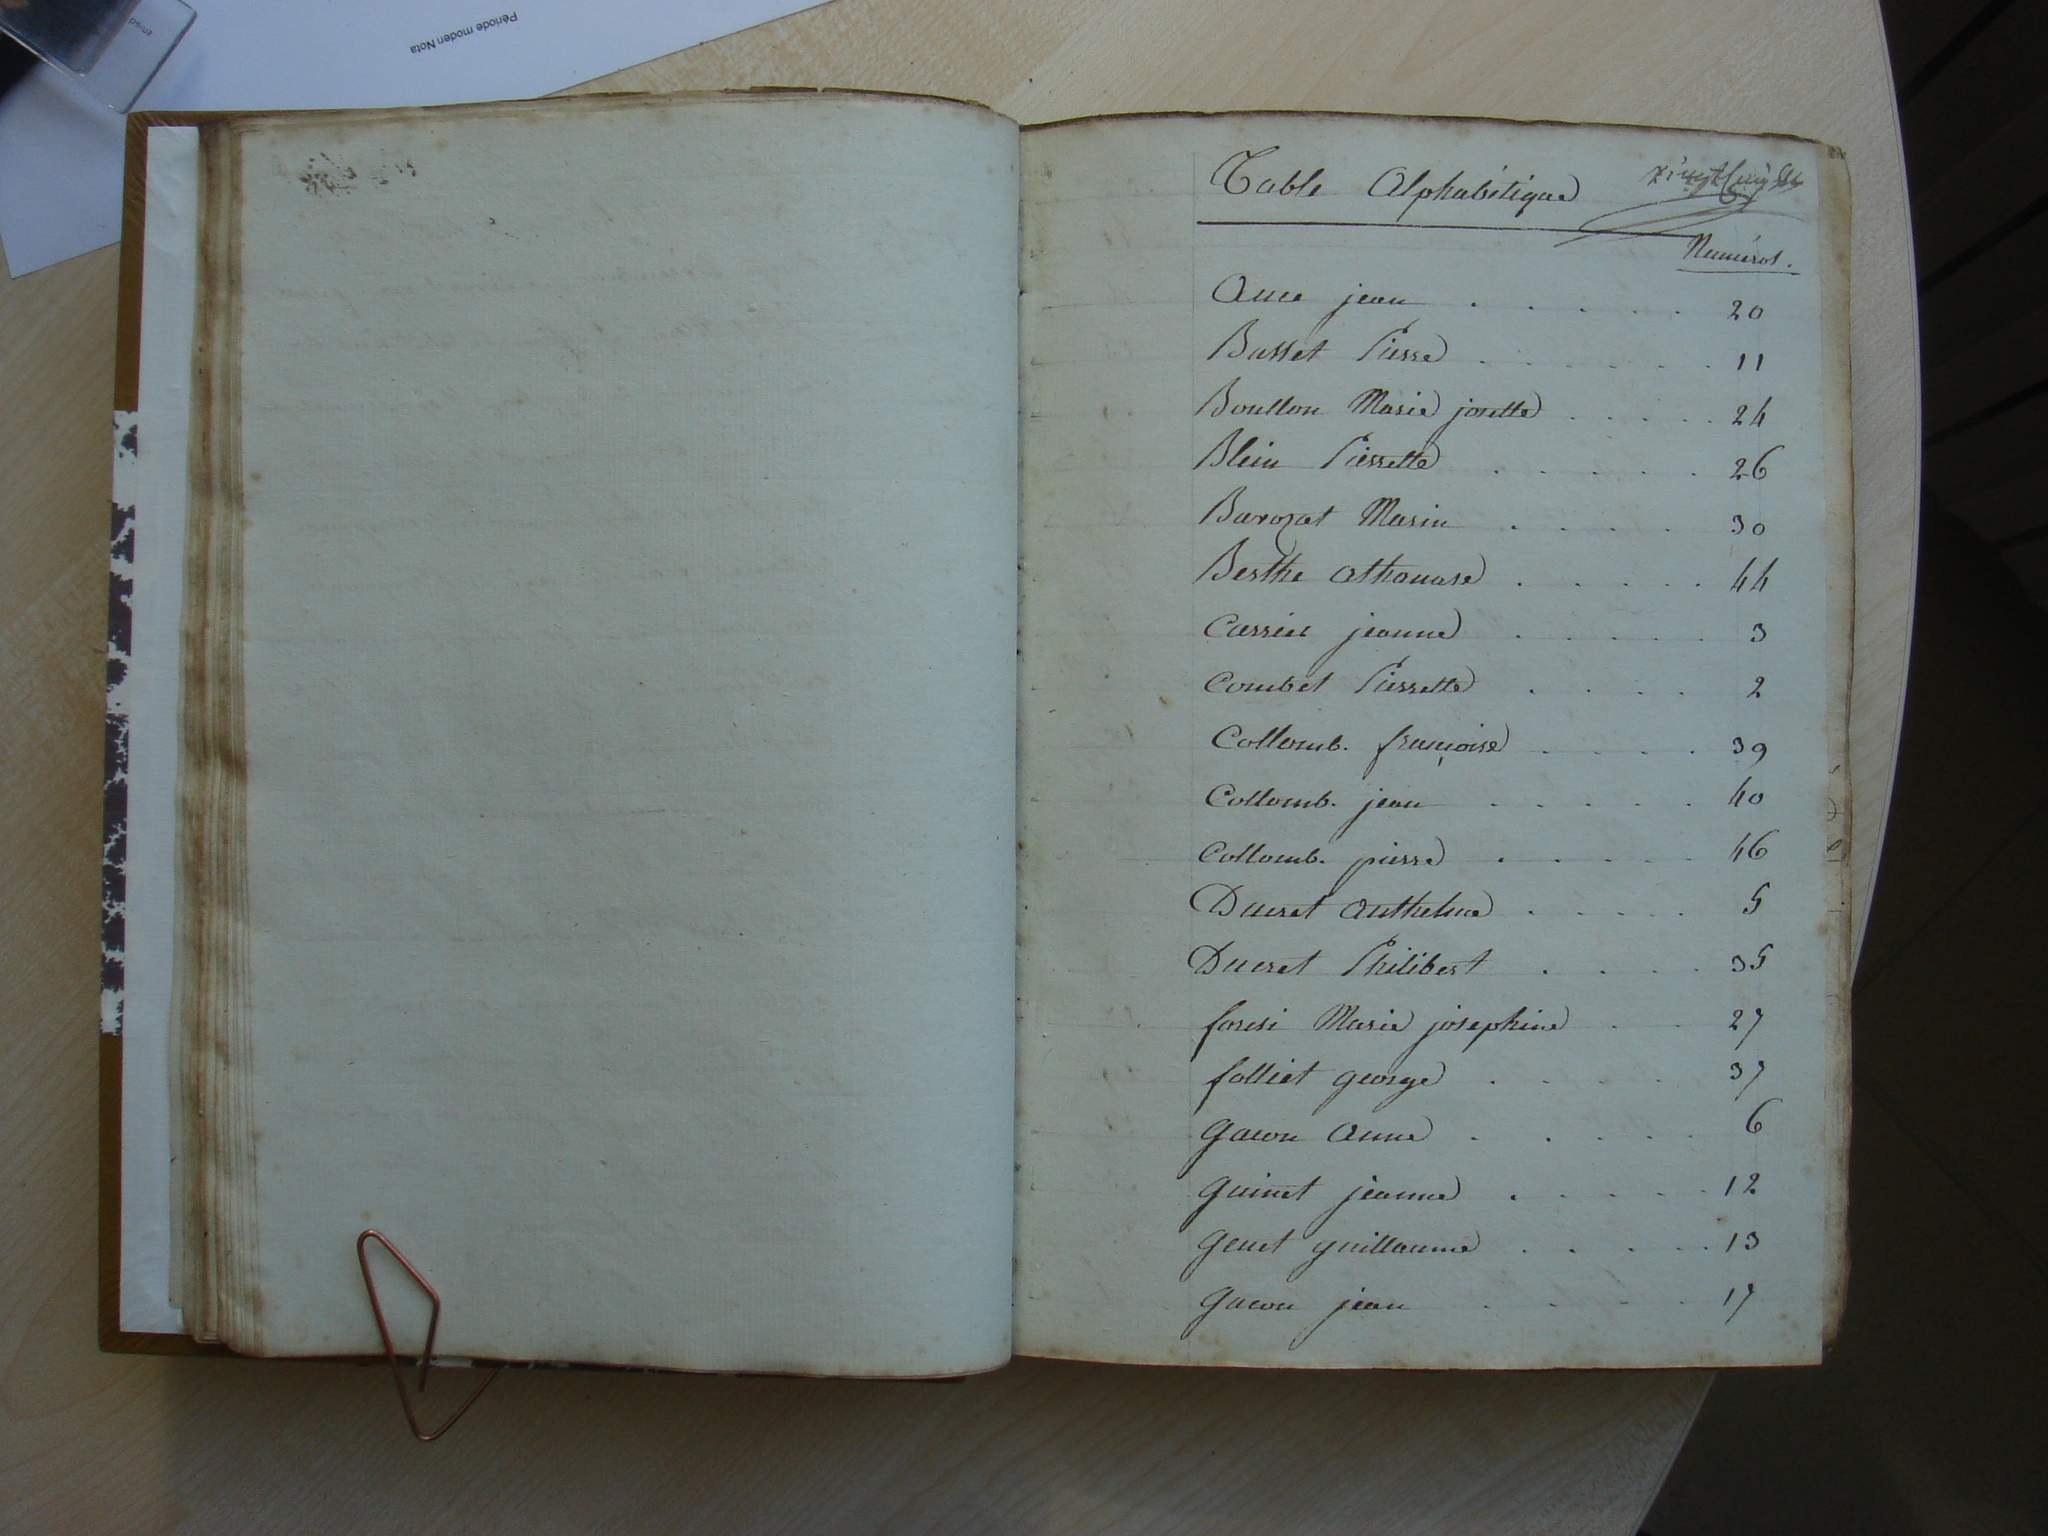 Période moden Nota
Table Alphabétique
Numéros.
Ance jean . . . . . 20
Basset Pierre . . . . . . 11
Boullon Marie josette . . . . . 24
Blein Pierrette . . . . . 26
Barozat Marin . . . . 30
Berthe athanase . . . . . 44
Carrier jeanne . . . . . 3
Combet Pierrette . . . . 2
Collomb. françoise . . . . 39
Collomb. jean . . . . . 40
Collomb. pierre . . . . . 46
Ducret anthelme . . . . . 5
Ducret Philibert . . . . 35
foresi Marie josephine . . 27
folliet george . . . . 37
gacon anne . . . . . 6
guinet jeanne . . . . . 12
genet guillaume . . . . . 13
gacon jean . . . . 17